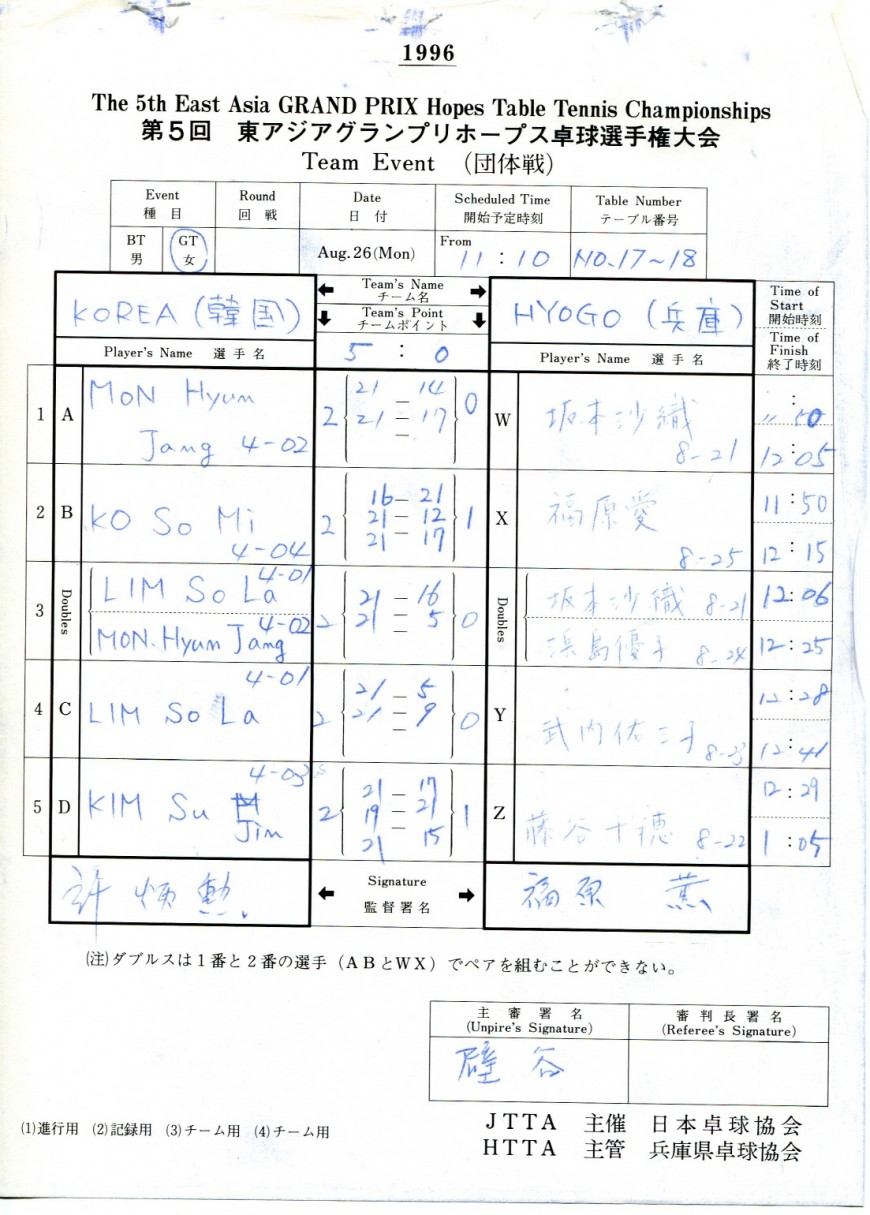 1996
The 5th East Asia GRAND PRIX Hopes Table Tennis Championships
第5回 東アジアグランプリホープス卓球選手権大会
Team Event (団体戦)
Event Round Date Scheduled Time Table Number
種目 回戦 日付 開始予定時刻 テーブル番号
BT GT From
男 女 Aug.26(Mon) 11:10 NO.17~18
Team's Name
チーム名
KOREA (韓国) HYOGO (兵庫)
Team's Point
チームポイント
5 : 0
Time of
Start
開始時刻
Time of
Finish
終了時刻
Player's Name 選手名 Player's Name 選手名
1 A MON Hyum 2 21 - 14 0 W 坂本沙織 : 50
Jang 4-02 21 - 17 8-21 12:05
-
2 B KO So Mi 2 16 - 21 1 X 福原愛 11:50
4-04 21 - 12 8-25 12:15
21 - 17
3 Doubles LIM So La 4-01 2 21 - 16 0 Doubles 坂本沙織 8-21 12:06
MON.Hyum Jang 4-02 21 - 5 浜島優子 8-24 12:25
-
4 C LIM So La 4-01 2 21 - 5 0 Y 武内佑三子 8-23 12:28
21 - 9 12:41
-
5 D KIM Su 4-03 2 21 - 17 1 Z 藤谷千穂 8-22 12:29
Jin 19 - 21 1:05
21 - 15
Signature
監督署名
許 勲 福原 薫
(注)ダブルスは1番と2番の選手(ABとWX)でペアを組むことができない。
主審署名 審判長署名
(Unpire's Signature) (Referee's Signature)
谷
(1)進行用 (2)記録用 (3)チーム用 (4)チーム用
JTTA 主催 日本卓球協会
HTTA 主管 兵庫県卓球協会